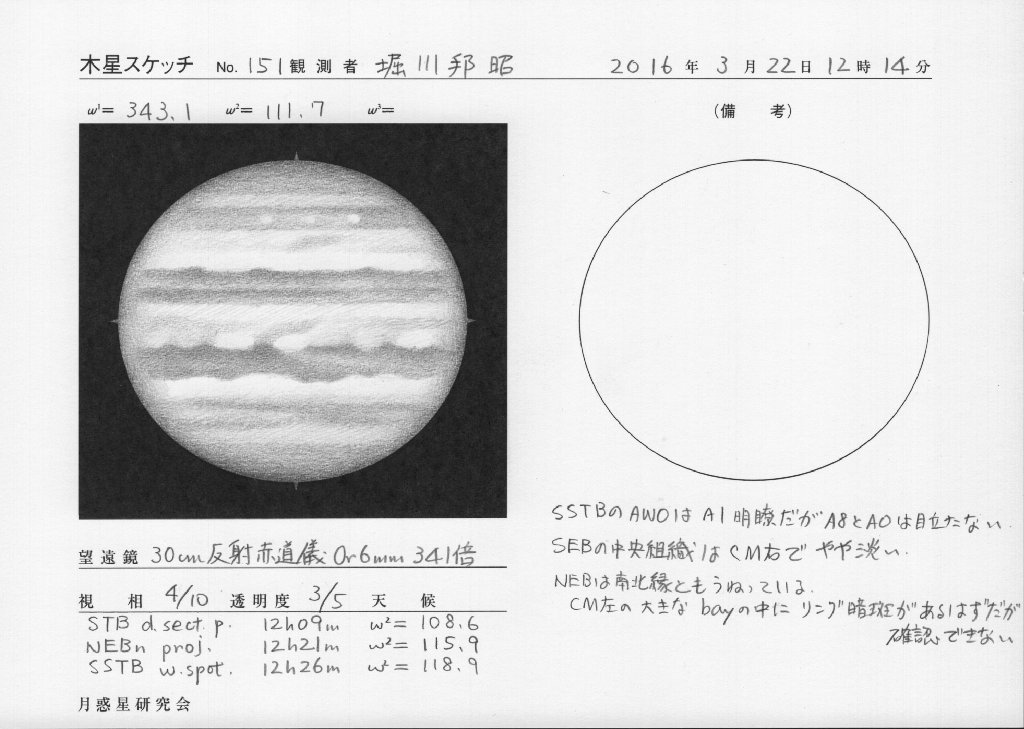 木星スケッチ No. 151 観測者 堀川邦昭 2016年 3月 22日 12時 14分
ω¹= 343.1 ω²= 111.7 ω³=
(備 考)
SSTBのAWOはA1明瞭だがA8とA0は目立たない.
SEBの中央組織はCM右でやや淡い.
NEBは南北縁ともうねっている.
CM左の大きなbayの中にリング暗斑があるはずだが
確認できない
望遠鏡 30cm反射赤道儀 Or6mm 341倍
視相 4/10 透明度 3/5 天候
STB d.sect. p. 12h09m ω²= 108.6
NEBn proj. 12h21m ω²= 115.9
SSTB w.spot. 12h26m ω²= 118.9
月惑星研究会